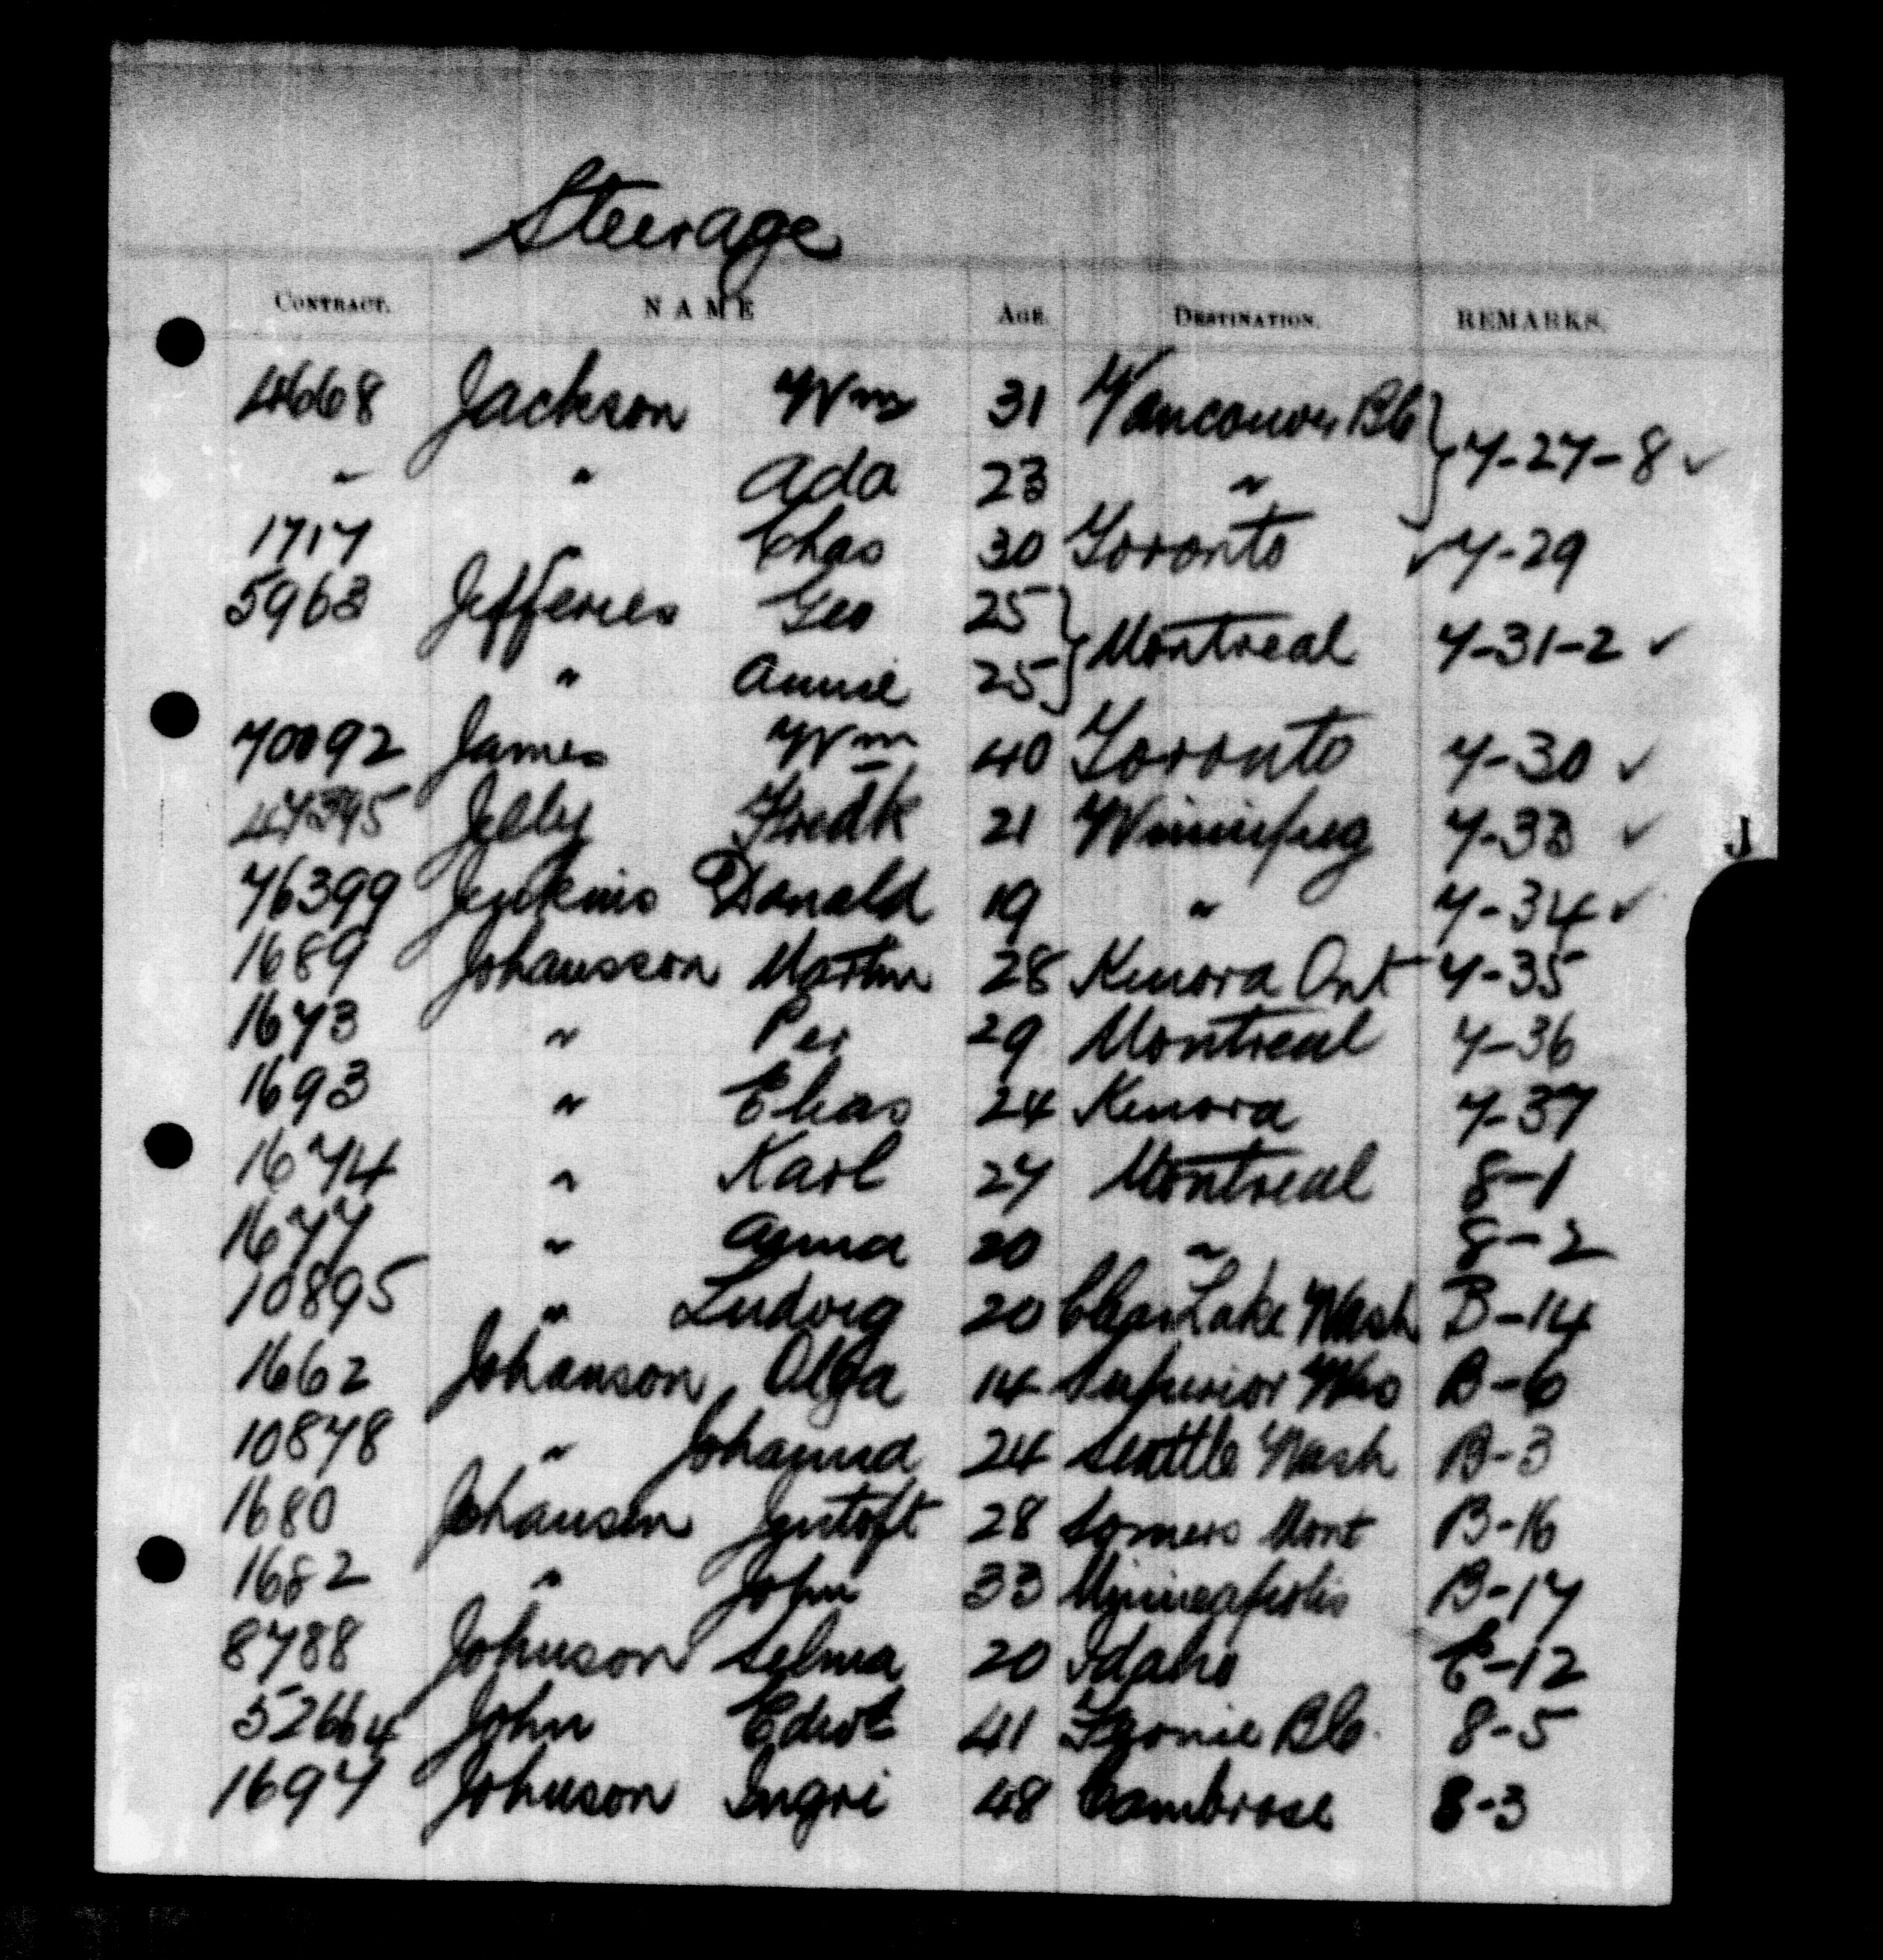 Steerage
CONTRACT. NAME AGE. DESTINATION. REMARKS.
4668 Jackson Wm 31 Vancouver BC } 7-27-8 ✓
" " Ada 23 "
1717 " Chas 30 Toronto ✓ 7-29
5963 Jefferies Geo 25 } Montreal 7-31-2 ✓
" Annie 25
70092 James Wm 40 Toronto 7-30 ✓
47395 Jelly Fredk 21 Winnipeg 7-33 ✓
J
76399 Jenkins Donald 19 " 7-34 ✓
1689 Johansson Martin 28 Kenora Ont 7-35
1673 " Per 29 Montreal 7-36
1693 " Elias 24 Kenora 7-37
1674 " Karl 27 Montreal 8-1
1677 " Anna 20 " 8-2
10895 " Ludvig 20 Clear Lake Wash B-14
1662 Johanson Olga 14 Superior Wis B-6
10878 " Johanna 24 Seattle Wash B-3
1680 Johansen 28 Somers Mont B-16
1682 " John 33 Minneapolis B-17
8788 Johnson Selma 20 Idaho E-12
52664 John 41 BC. 8-5
1697 Johnson Ingri 48 Cambrose 8-3